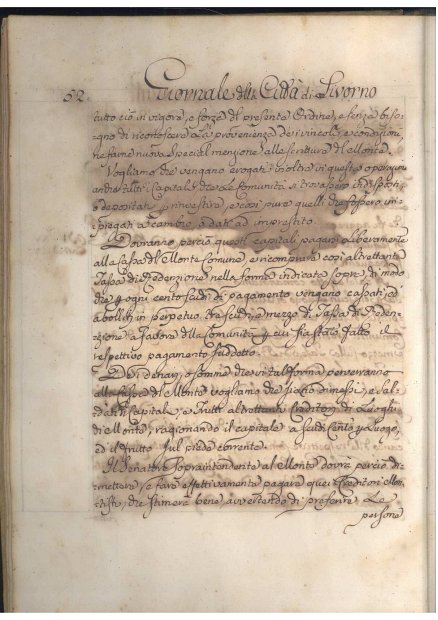 52. Giornale della Città di Livorno
tutto ciò in vigore, e forza del presente Ordine, e senza biso-
gno di riconoscere la provenienza dei vincoli, e condizioni,
ne farne nuova special menzione alle scritture del Monte.
Vogliamo che vengano erogati inoltre in queste operazioni
anche tutti i Capitali che le Comunità si trovassero in
o depositati p rinvestire, e così pure quelli che fossero im-
piegati a Cambio, o dati ad imprestito.
Dovranno perciò questi capitali pagarsi liberamente
alla Cassa del Monte Comune, e ricomprare così altrettanta
Tassa di Redenzione nella forma indicata sopra, di modo
che p ogni cento scudi di pagamento vengano cassati, ed
aboliti in perpetuo tre scudi, e mezzo di Tassa di Reden-
zione a favore della Comunità p cui sia stato fatto il
respettivo pagamento suddetto.
Coi denari, o somme che in tal forma perverranno
alla Cassa del Monte vogliamo che siano dimessi, e sal-
dati i Capitali, e frutti ad altrettanti Creditori di Luoghi
di Monte, ragionando il capitale a scudi cento p Luogo,
ed il frutto sul piede corrente.
Il Senatore Soprintendente al Monte dovrà perciò di-
mettere, e fare effettivamente pagare quei Creditori Mon-
tisti, che stimerà bene avvertendo di preferire le
persone